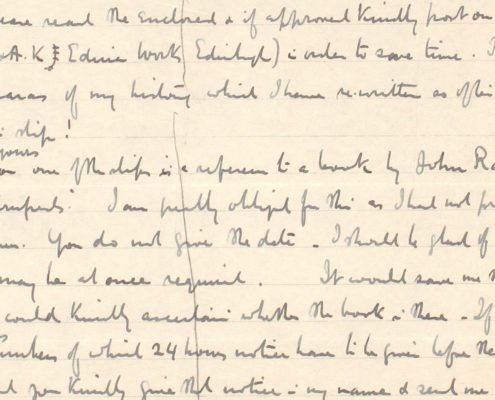 read the enclosed & if approved kindly post on
& A.K Edina Works Edinbgh) in order to save time.
of my history which I have re-written as often
slip!
yours
on one of the slips is a reference to a book by John Ra
I am greatly obliged for this as I had not
You do not give the date - I should be glad of
may be at once required. It would save me
could kindly ascertain whether the book is there - If
numbers of which 24 hours notice have to be given before the
you kindly give that notice in my name & send me